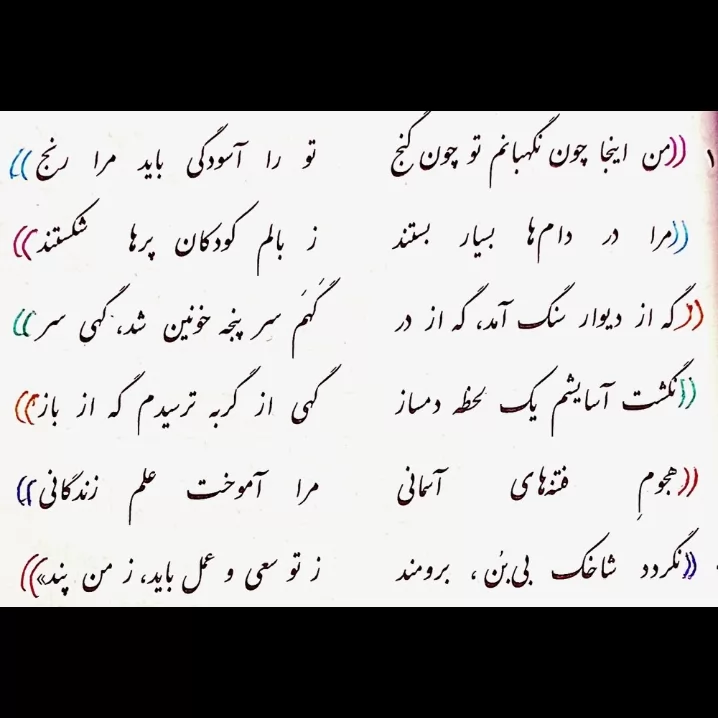 ((من اینجا چون نگهبانم تو چون گنج تو را آسودگی باید مرا رنج))
((مرا در دام‌ها بسیار بستند ز بالم کودکان پرها شکستند))
((گه از دیوار سنگ آمد، گه از در گَهَم سر پنجه خونین شد، گهی سر))
((نگشت آسایشم یک لحظه دمساز گهی از گربه ترسیدم گه از باز))
((هجومِ فتنه‌های آسمانی مرا آموخت علم زندگانی))
((نگردد شاخک بی‌بُن، برومند ز تو سعی و عمل باید، ز من پند»))